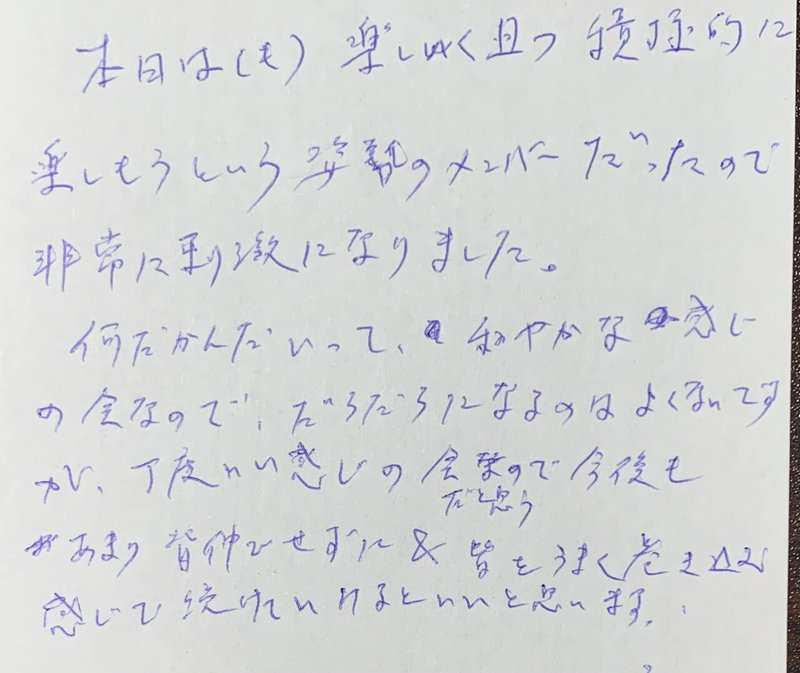 本日は(も) 楽しく且つ 積極的に
楽しもうという 姿勢のメンバーだったので
非常に刺激になりました。
何だかんだいって、和やかな感じ
の会なので、だらだらになるのはよくないです
が、丁度いい感じの会なので今後も
だと思う
あまり背伸びせずに & 皆をうまく巻き込む
感じで続けていけるといいと思います。